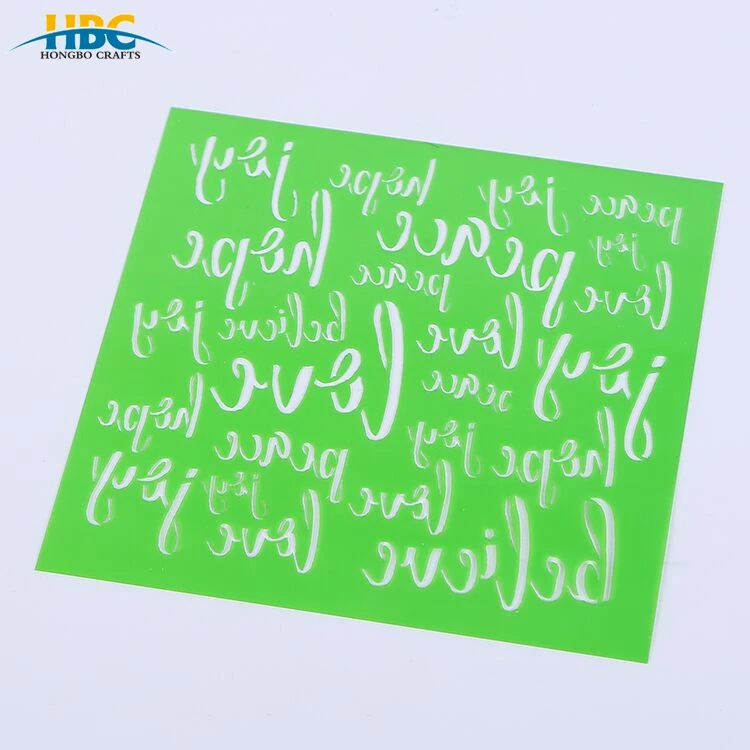 HBC
HONGBO CRAFTS
peace joy hope joy
joy peace hope
love peace
joy love believe joy
peace love
hope joy peace hope
love joy joy
believe love